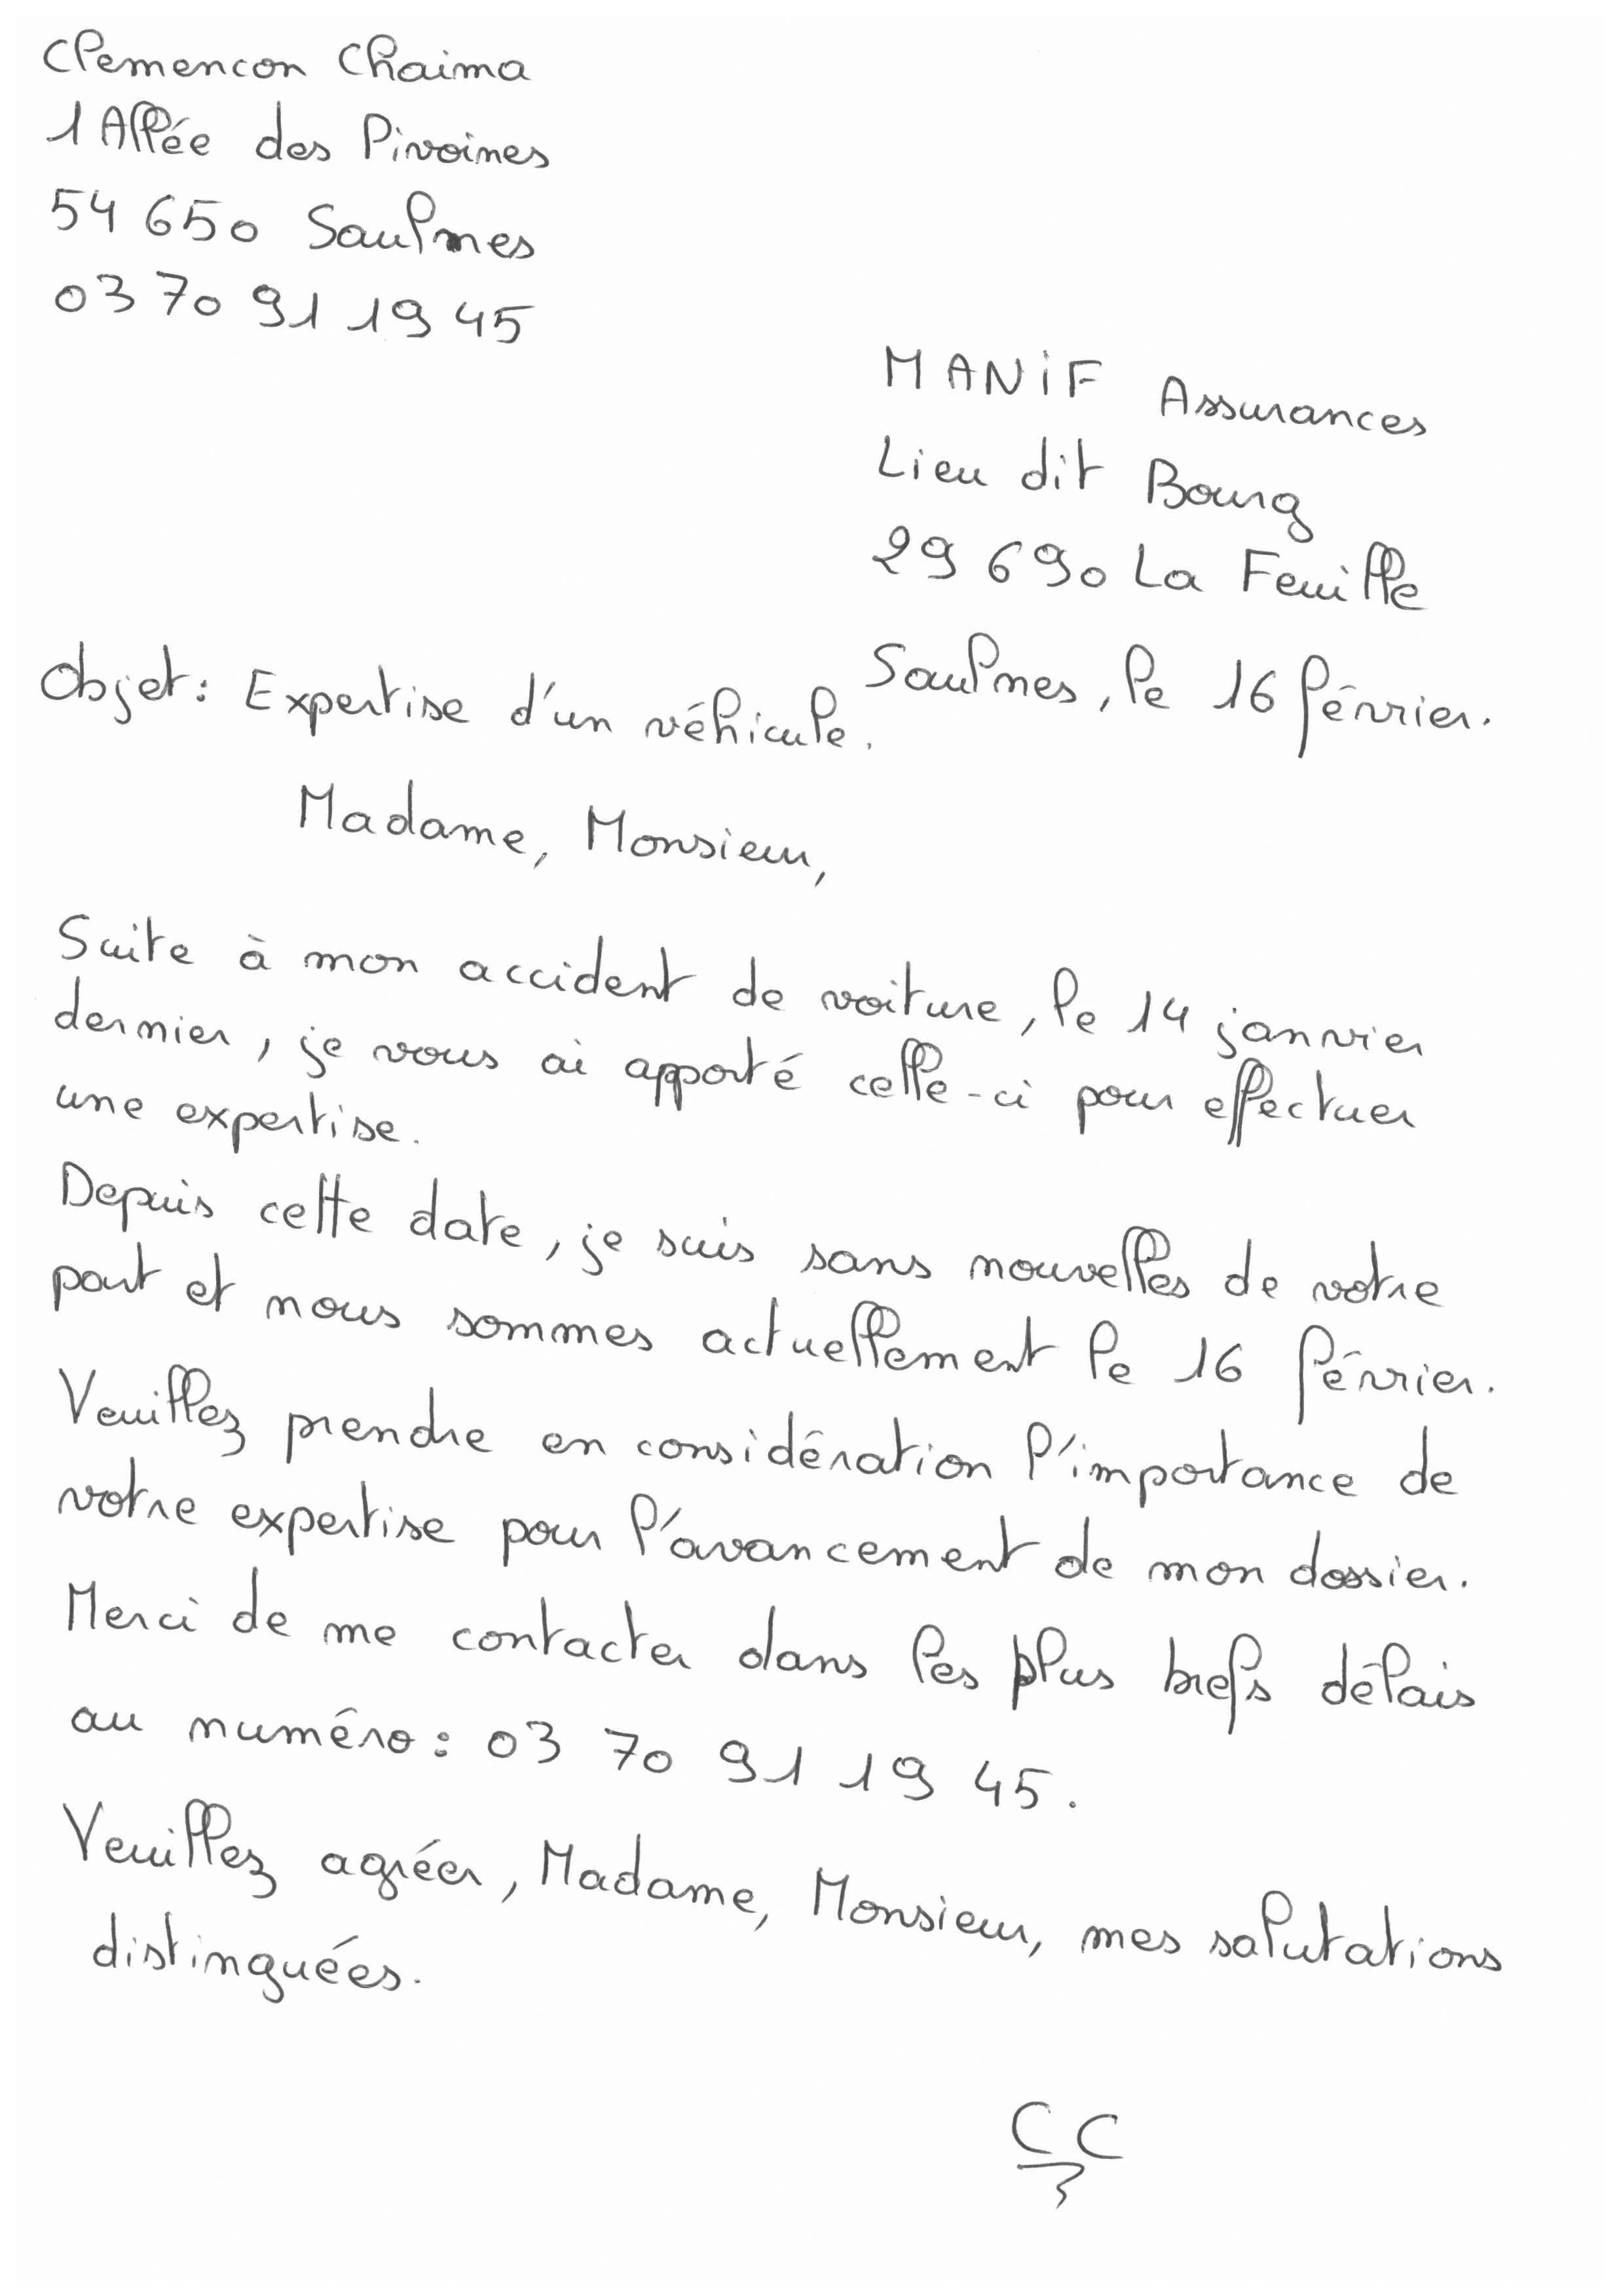 Clemencon Chaima
1 Allée des Pivoines
54 650 Saulnes
03 70 91 19 45
MANiF Assurances
Lieu dit Bourg
29 690 La Feuille
Saulnes, le 16 février.
Objet : Expertise d'un véhicule.
Madame, Monsieur,
Suite à mon accident de voiture, le 14 janvier
dernier, je vous ai apporté celle-ci pour effectuer
une expertise.
Depuis cette date, je suis sans nouvelles de votre
part et nous sommes actuellement le 16 février.
Veuillez prendre en considération l'importance de
votre expertise pour l'avancement de mon dossier.
Merci de me contacter dans les plus brefs délais
au numéro : 03 70 91 19 45.
Veuillez agréer, Madame, Monsieur, mes salutations
distinguées.
CC